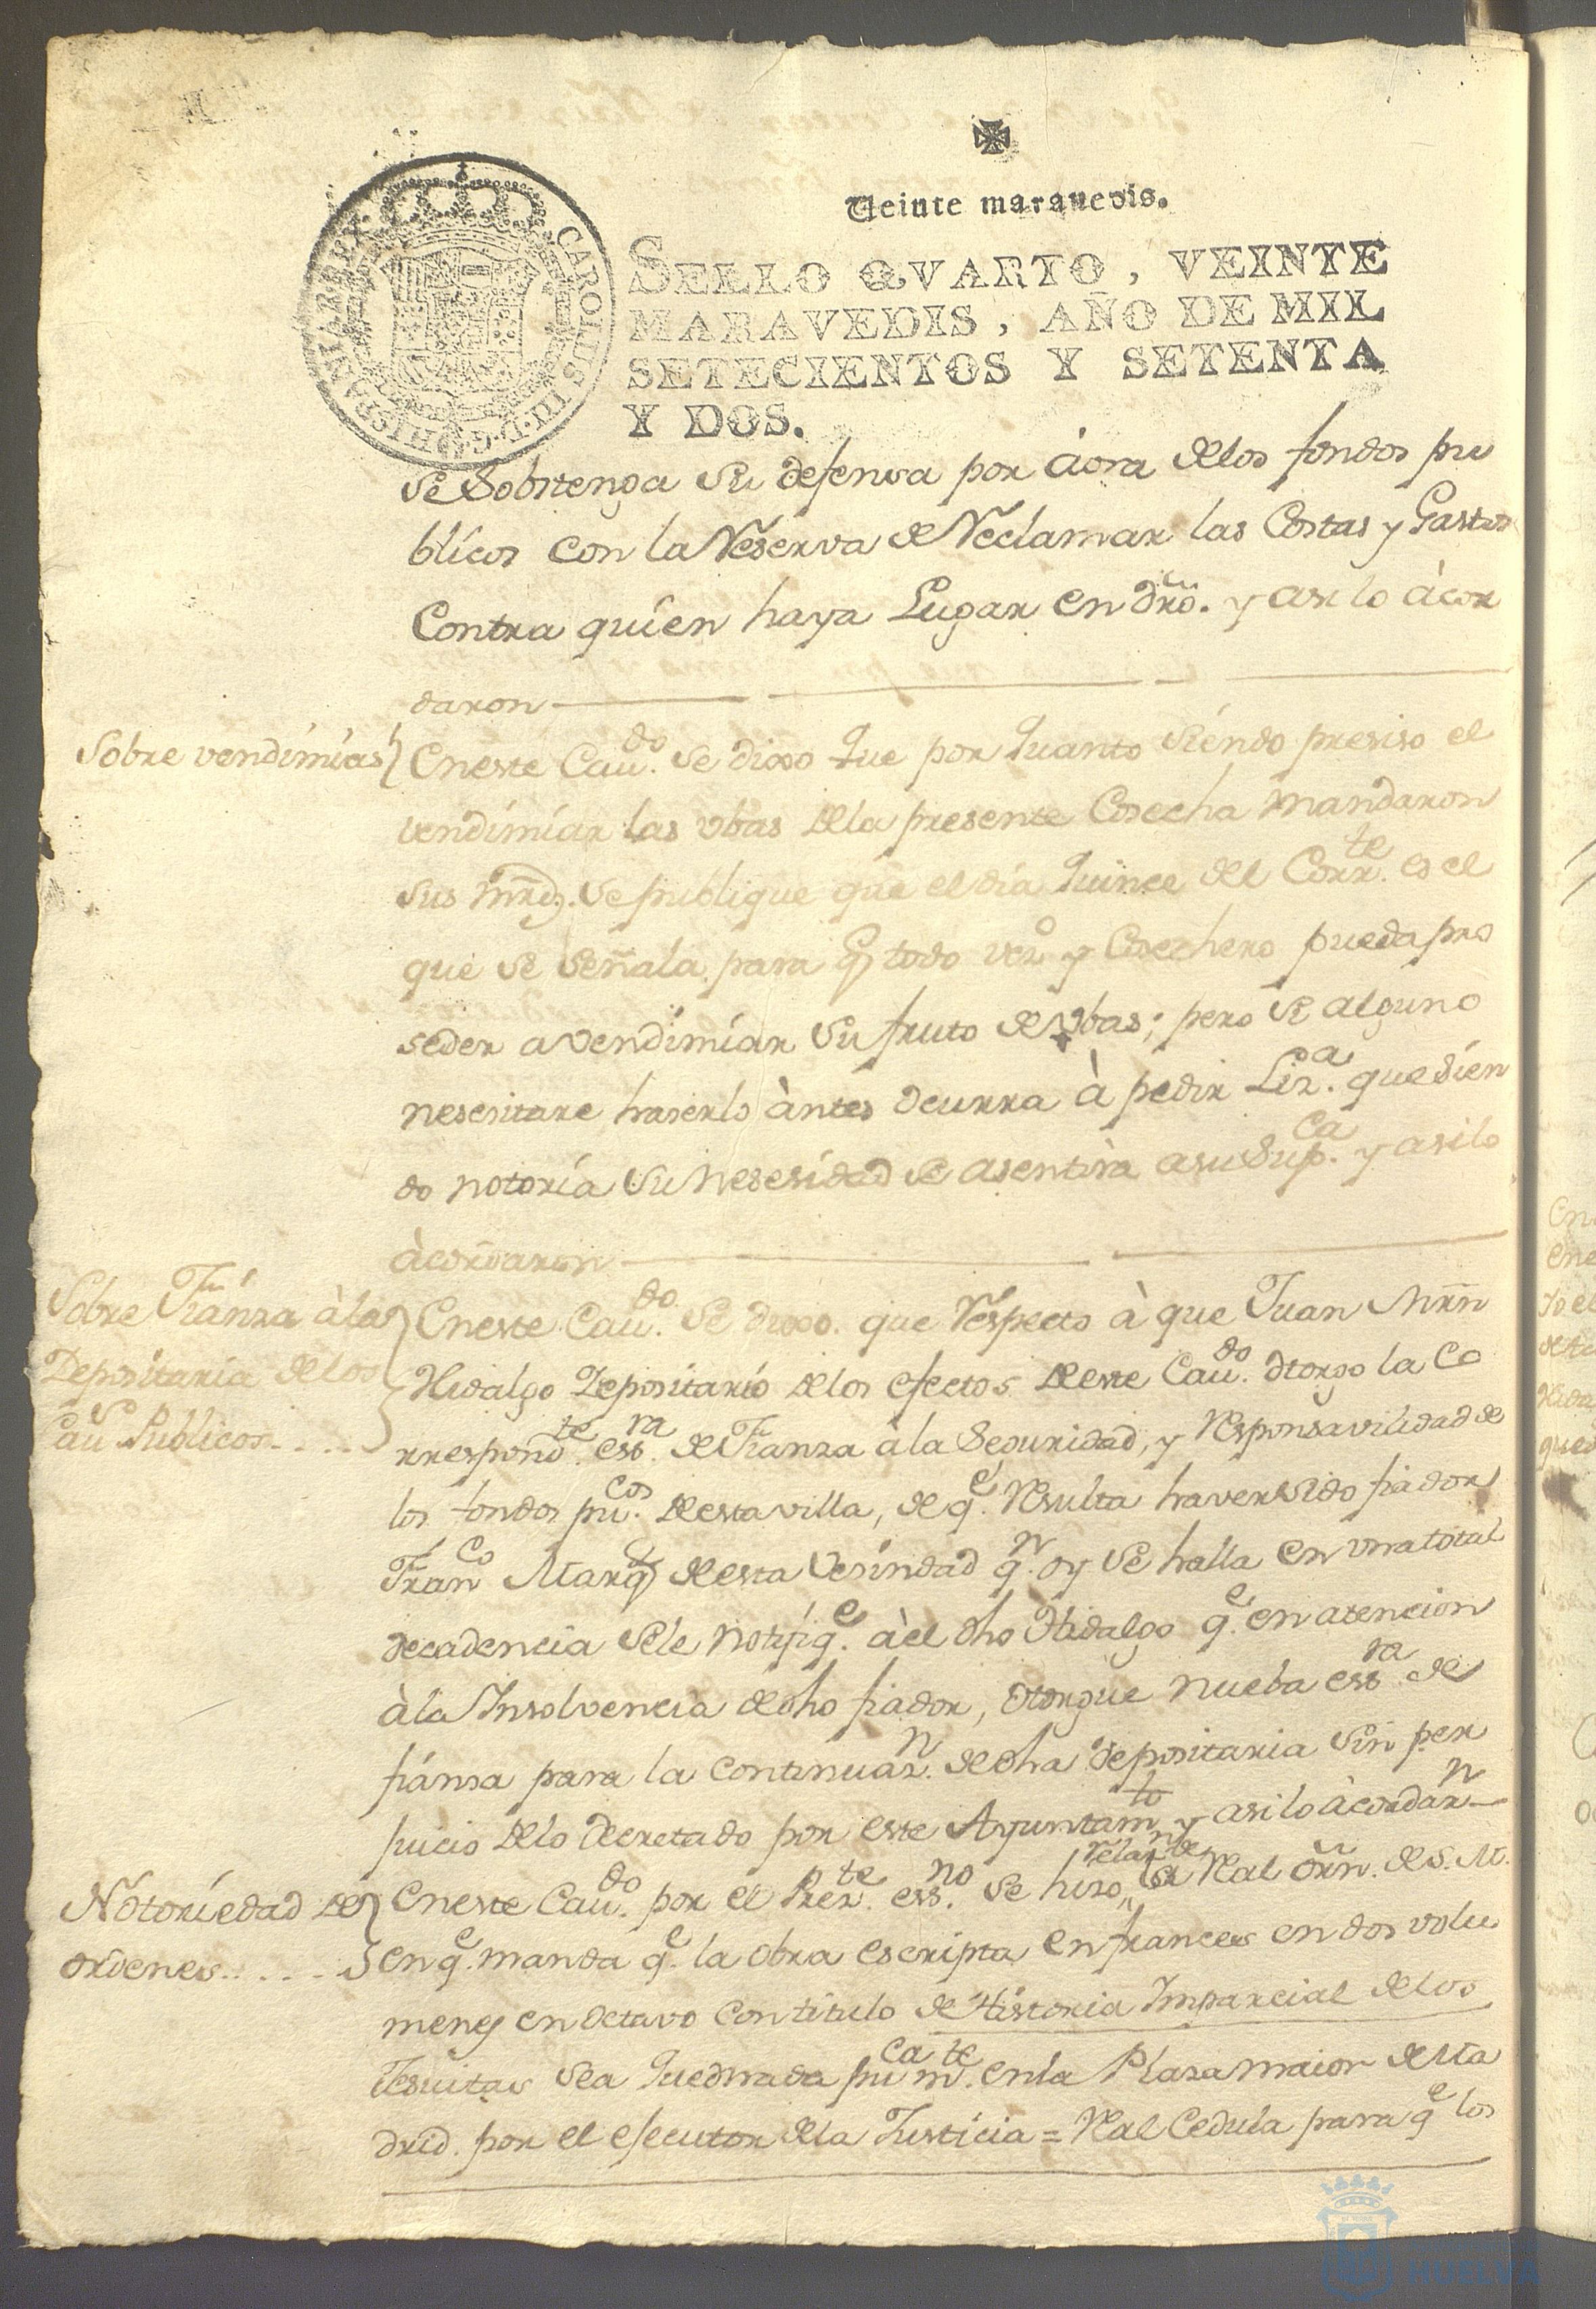 Veinte maravedis.
CAROLUS III D.G. HISPANIAR REX
SELLO QVARTO, VEINTE
MARAVEDIS, AÑO DE MIL
SETECIENTOS Y SETENTA
Y DOS.
se Sobstenga su defensa por àora delos fondos pu
blicos con la Reserva de Reclamar las Costas y Gastos
Contra quien haya Lugar en dr̃o. y asi lo àcor
daron
Sobre vendimias
Eneste Cau.do se dixo que por quanto siendo presiso el
vendimiar las vbas dela presente Cosecha mandaron
sus mrds. se publique que el dia quince del Corr.te es el
que se señala para q todo vezo y Cosechero pueda pro
seder a vendimiar su fruto de vbas; pero si alguno
nesesitare haserlo àntes ocurra à pedir Liz.a que sien
do notoria su nesesidad se asentirà asu Sup.ca y asilo
àcordaron
Sobre Fianza àla
Depositaria delos
Cau.s Publicos....
Eneste Cau.do se dixo. que Respecto à que Juan Mrñ
Hidalgo Depositario delos efectos deeste Cau.do otorgo la Co
rrespond.te ess.ra de Fianza ala Seguridad, y Responsavilidad de
los fondos pu.cos deesta villa, de q.e Resulta haver sido fiador
Fran.co Marq deesta Vesindad q.n oy se halla en vna total
decadencia sele notifiq.e àel dho Hidalgo q.e en atencion
àla Insolvencia de dho fiador, otorgue nueba ess.ra de
fianza para la continuaz.n de dha depositaria sin per
juicio delo decretado por este Ayuntam.to y asilo àcordar.n
Notoriedad de
ordenes.....
Eneste Cau.do por el Prez.te ess.no se hizo Relaz.n de la Real orñ. de S. M.
en q.e manda q.e la obra escripta en frances en dos volu
menes en octavo con titulo de Historia Imparcial delos
Jesuitas sea quemada pu.cam.te en la Plaza maior de Ma
drid. por el executor dela Justicia = Real Cedula para q.e los
HUELVA